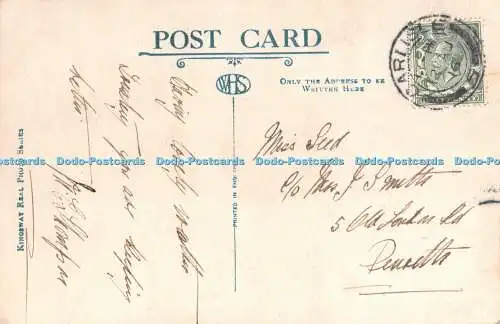 POST CARD
WHS
ONLY THE ADDRESS TO BE
WRITTEN HERE
KINGSWAY REAL PHOTO SERIES
PRINTED IN ENG
Having lovely weather
you are keeping
better
Miss Seed
c/o Mrs J. Smith
5 Old London Rd
Dodo-Postcards Dodo-Postcards Dodo-Postcards Dodo-Postcards Dodo-Postcards Dodo-Postcards